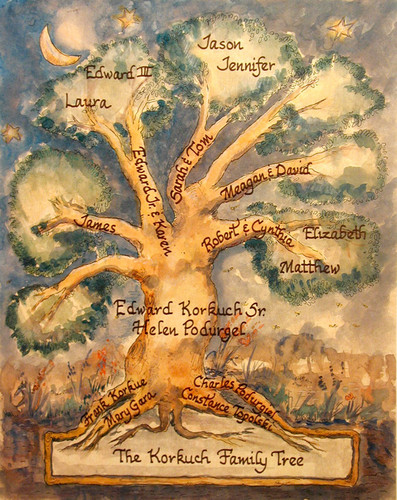 Jason
Jennifer
Edward III
Laura
Edward Jr. & Karen
Sarah & Tom
Meagan & David
James
Robert & Cynthia
Elizabeth
Matthew
Edward Korkuch Sr.
Helen Podurgel
Frank Korkue
Mary Gara
Charles Podurgiel
Constance Topolski
The Korkuch Family Tree